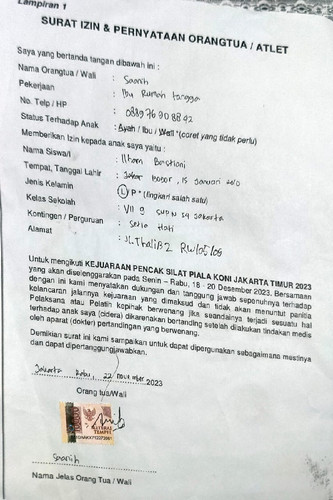 Lampiran 1
SURAT IZIN & PERNYATAAN ORANGTUA / ATLET
Saya yang bertanda tangan dibawah ini :
Nama Orangtua / Wali : Saanih
Pekerjaan : Ibu Rumah tangga
No. Telp / HP : 088976908892
Status Terhadap Anak : Ayah / Ibu / Wali *(coret yang tidak perlu)
Memberikan Izin kepada anak saya yaitu :
Nama Siswa/i : Ilham Bastiani
Tempat, Tanggal Lahir : Bogor, 15 Januari 2010
Jenis Kelamin : L/P *(lingkari salah satu)
Kelas Sekolah : VII 9 SMPN 54 Jakarta
Kontingen / Perguruan : Setia Hati
Alamat : JL. Thalib 2 RW/05/08
Untuk mengikuti KEJUARAAN PENCAK SILAT PIALA KONI JAKARTA TIMUR 2023
yang akan diselenggarakan pada Senin – Rabu, 18 - 20 Desember 2023. Bersamaan
dengan ini kami menyatakan dukungan dan tanggung jawab sepenuhnya terhadap
kelancaran jalannya kejuaraan yang dimaksud dan tidak akan menuntut panitia
Pelaksana atau Pelatih kopihak berwenang jika seandainya terjadi sesuatu hal
terhadap anak saya (cidera) dikarenakan bertanding setelah dilakukan tindakan medis
oleh aparat (dokter) pertandingan yang berwenang.
Demikian surat ini kami sampaikan untuk dapat dipergunakan sebagaimana mestinya
dan dapat dipertanggungjawabkan.
Jakarta Rabu, 22 November 2023
Orang tua/Wali
METERAI
TEMPEL
Saanih
Nama Jelas Orang Tua / Wali